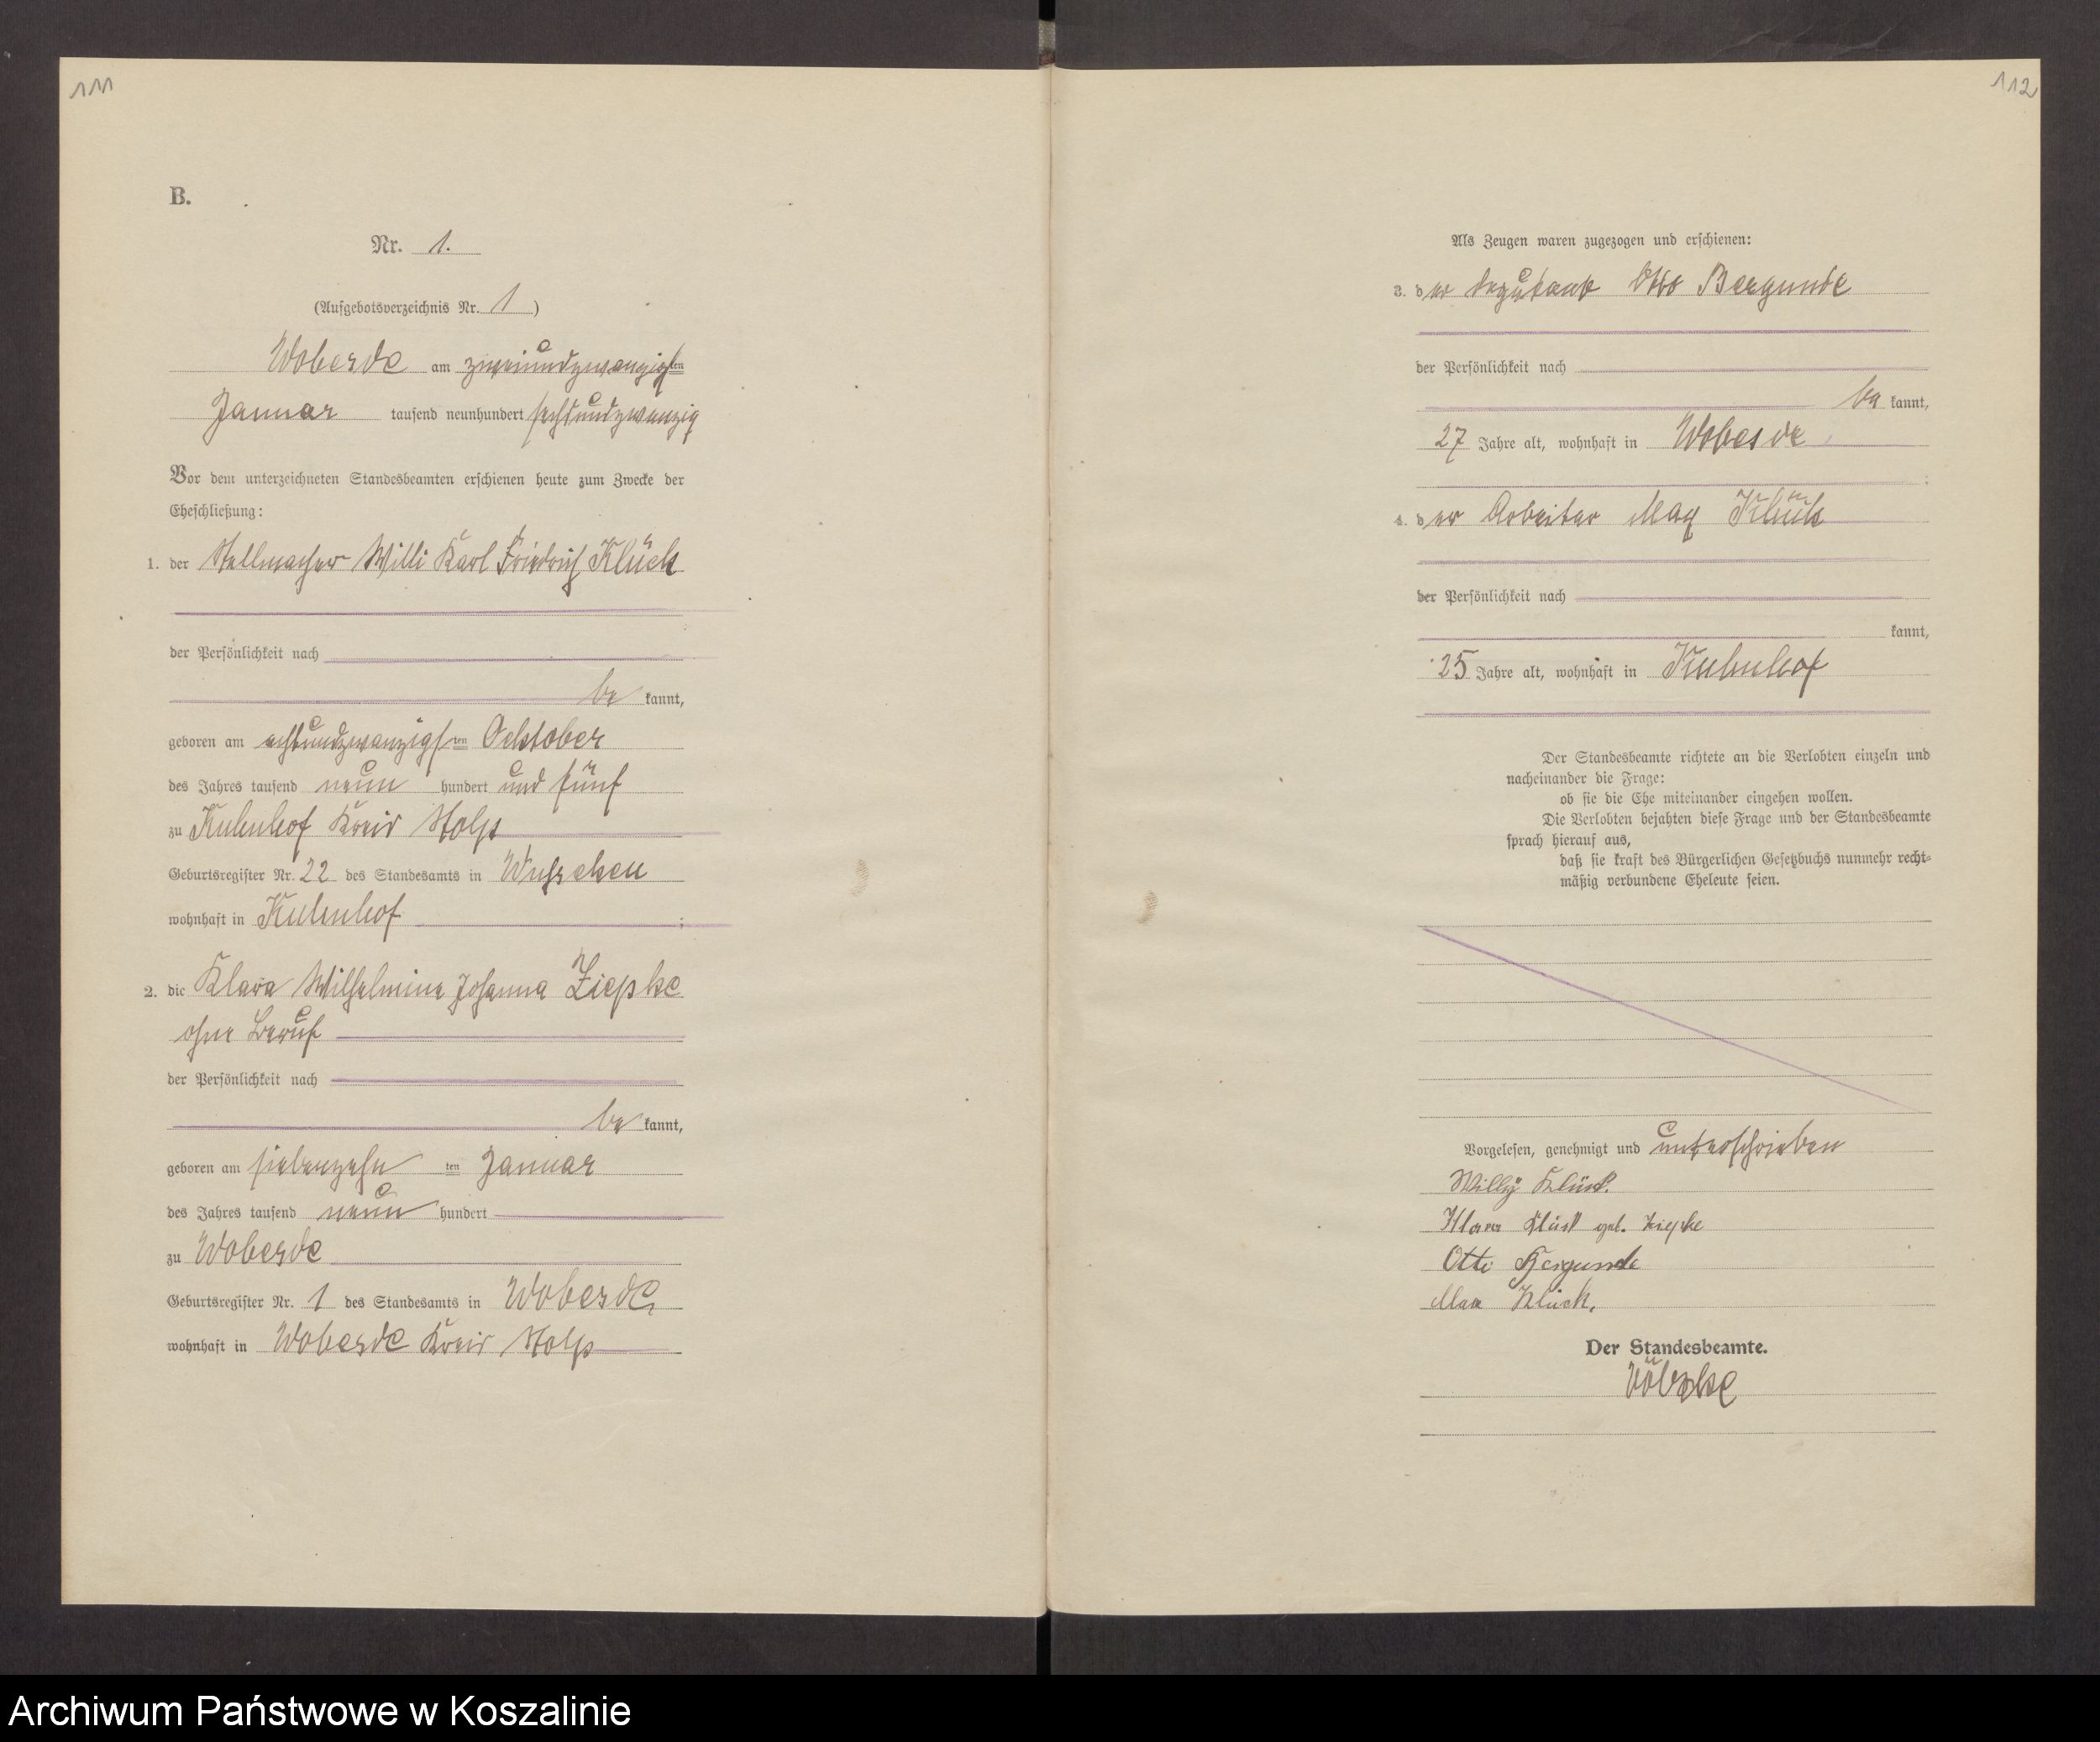 111
B.
Nr. 1.
(Aufgebotsverzeichnis Nr. 1)
Wobesde am zweiundzwanzigsten
Januar tausend neunhundert sechsundzwanzig
Vor dem unterzeichneten Standesbeamten erschienen heute zum Zwecke der
Eheschließung:
1. der Stellmacher Willi Karl Friedrich Klück
der Persönlichkeit nach
be kannt,
geboren am achtundzwanzigsten Ocktober
des Jahres tausend neun hundert und fünf
zu Kuhnhof Kreis Stolp
Geburtsregister Nr. 22 des Standesamts in
wohnhaft in Kuhnhof ;
2. die Klara Wilhelmine Johanna Ziepke
ohne Beruf
der Persönlichkeit nach
be kannt,
geboren am siebenzehn ten Januar
des Jahres tausend neun hundert
zu Wobesde
Geburtsregister Nr. 1 des Standesamts in Wobesde,
wohnhaft in Wobesde Kreis Stolp
112
Als Zeugen waren zugezogen und erschienen:
3. der Deputant Otto Bergunde
der Persönlichkeit nach
be kannt,
27 Jahre alt, wohnhaft in Wobesde
;
4. der Arbeiter Max Klück
der Persönlichkeit nach
kannt,
25 Jahre alt, wohnhaft in Kuhnhof
Der Standesbeamte richtete an die Verlobten einzeln und
nacheinander die Frage:
ob sie die Ehe miteinander eingehen wollen.
Die Verlobten bejahten diese Frage und der Standesbeamte
sprach hierauf aus,
daß sie kraft des Bürgerlichen Gesetzbuchs nunmehr recht-
mäßig verbundene Eheleute seien.
Vorgelesen, genehmigt und unterschrieben
Willy Klück.
Klara Klück geb. Ziepke
Otto Bergunde
Max Klück.
Der Standesbeamte.
Archiwum Państwowe w Koszalinie